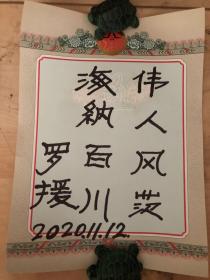 伟人风范
海納百川
罗援
2020.11.12.